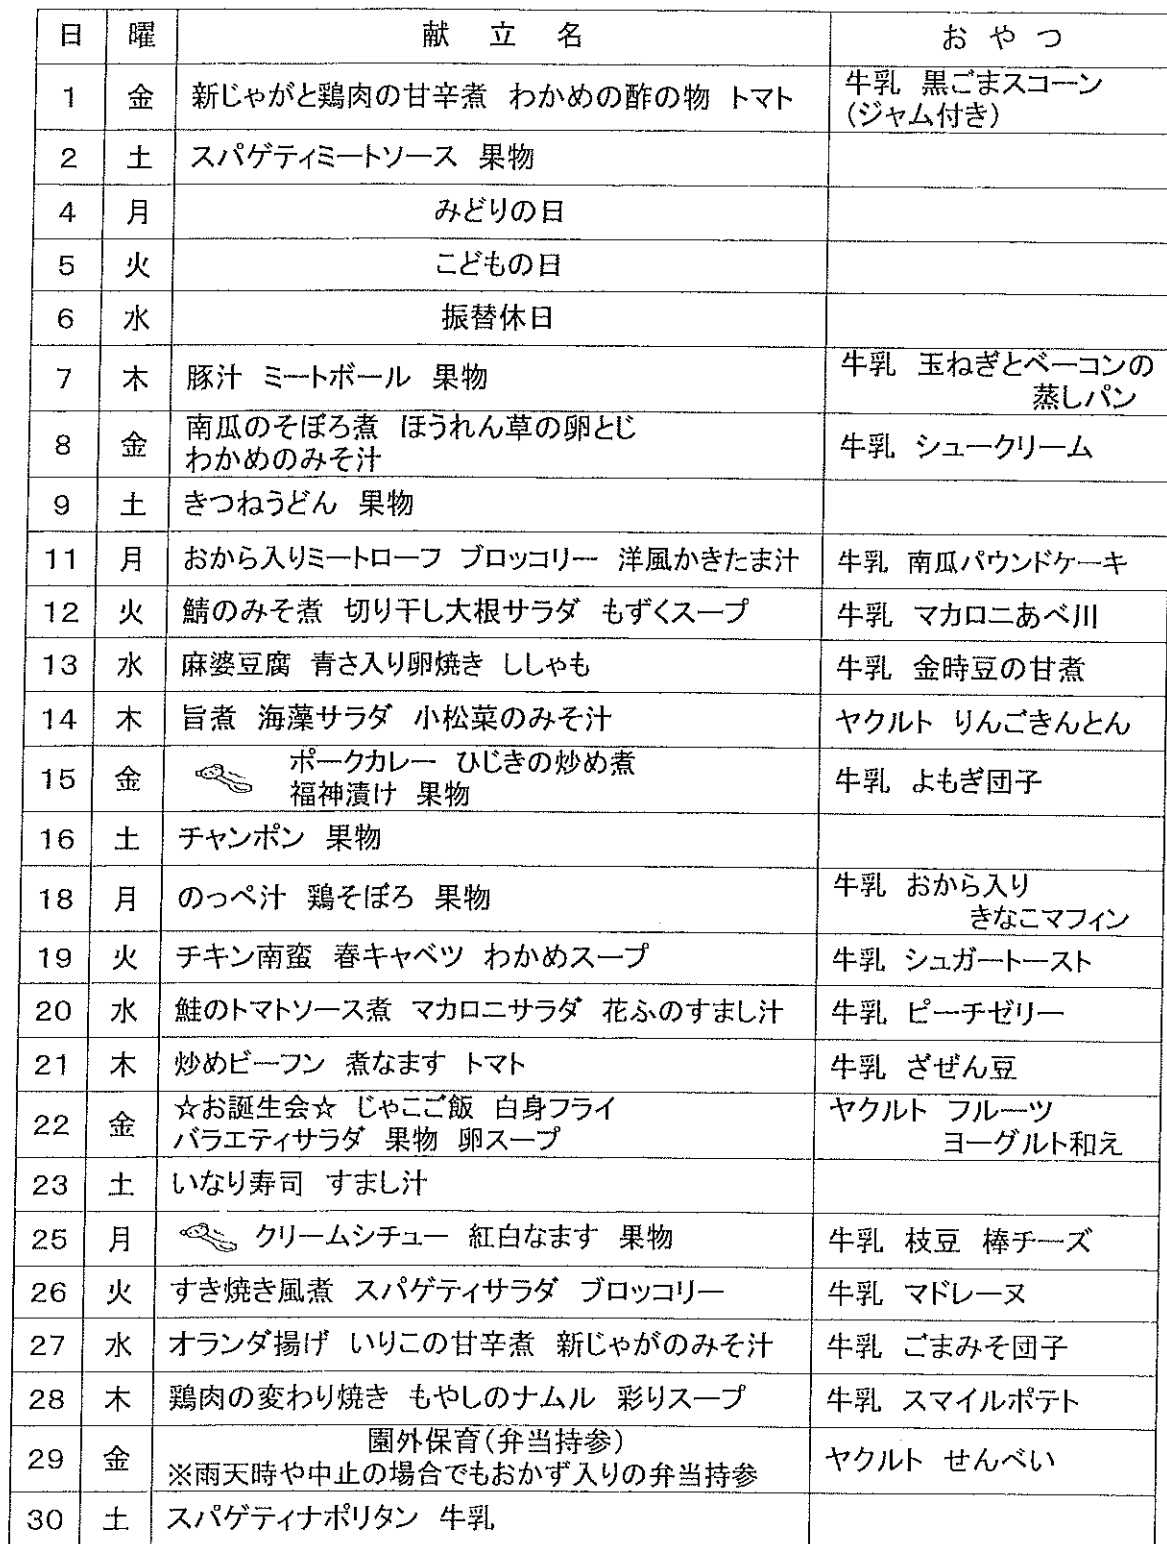 日 曜 献立名 おやつ
1 金 新じゃがと鶏肉の甘辛煮 わかめの酢の物 トマト 牛乳 黒ごまスコーン
(ジャム付き)
2 土 スパゲティミートソース 果物
4 月 みどりの日
5 火 こどもの日
6 水 振替休日
7 木 豚汁 ミートボール 果物 牛乳 玉ねぎとベーコンの
蒸しパン
8 金 南瓜のそぼろ煮 ほうれん草の卵とじ
わかめのみそ汁 牛乳 シュークリーム
9 土 きつねうどん 果物
11 月 おから入りミートローフ ブロッコリー 洋風かきたま汁 牛乳 南瓜パウンドケーキ
12 火 鯖のみそ煮 切り干し大根サラダ もずくスープ 牛乳 マカロニあべ川
13 水 麻婆豆腐 青さ入り卵焼き ししゃも 牛乳 金時豆の甘煮
14 木 旨煮 海藻サラダ 小松菜のみそ汁 ヤクルト りんごきんとん
15 金 ポークカレー ひじきの炒め煮
福神漬け 果物 牛乳 よもぎ団子
16 土 チャンポン 果物
18 月 のっぺ汁 鶏そぼろ 果物 牛乳 おから入り
きなこマフィン
19 火 チキン南蛮 春キャベツ わかめスープ 牛乳 シュガートースト
20 水 鮭のトマトソース煮 マカロニサラダ 花ふのすまし汁 牛乳 ピーチゼリー
21 木 炒めビーフン 煮なます トマト 牛乳 ざぜん豆
22 金 ☆お誕生会☆ じゃこご飯 白身フライ
バラエティサラダ 果物 卵スープ ヤクルト フルーツ
ヨーグルト和え
23 土 いなり寿司 すまし汁
25 月 クリームシチュー 紅白なます 果物 牛乳 枝豆 棒チーズ
26 火 すき焼き風煮 スパゲティサラダ ブロッコリー 牛乳 マドレーヌ
27 水 オランダ揚げ いりこの甘辛煮 新じゃがのみそ汁 牛乳 ごまみそ団子
28 木 鶏肉の変わり焼き もやしのナムル 彩りスープ 牛乳 スマイルポテト
29 金 園外保育(弁当持参)
※雨天時や中止の場合でもおかず入りの弁当持参 ヤクルト せんべい
30 土 スパゲティナポリタン 牛乳